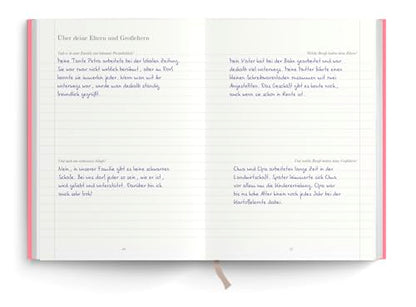 Über deine Eltern und Großeltern
Gab es in eurer Familie eine bekannte Persönlichkeit?
Meine Tante Petra arbeitete bei der lokalen Zeitung.
Sie war zwar nicht wirklich berühmt, aber im Dorf
kannte sie immerhin jeder. Wenn man mit ihr
unterwegs war, wurde man deshalb ständig
freundlich gegrüßt.
Und auch ein schwarzes Schaf?
Nein, in unserer Familie gibt es keine schwarzen
Schafe. Bei uns darf jeder so sein, wie er ist,
wird geliebt und unterstützt. Darüber bin ich
auch sehr froh!
Welche Berufe hatten deine Eltern?
Mein Vater hat bei der Bahn gearbeitet und war
deshalb viel unterwegs. Meine Mutter führte einen
kleinen Schreibwarenladen zusammen mit zwei
Angestellten. Das Geschäft gibt es heute noch,
auch wenn sie schon in Rente ist.
Und welche Berufe hatten deine Vorfahren?
Oma und Opa arbeiteten lange Zeit in der
Landwirtschaft. Später kümmerte sich Oma
vor allem um die Kindererziehung. Opa war
bis ins hohe Alter hinein noch jedes Jahr bei der
Kartoffelernte dabei.